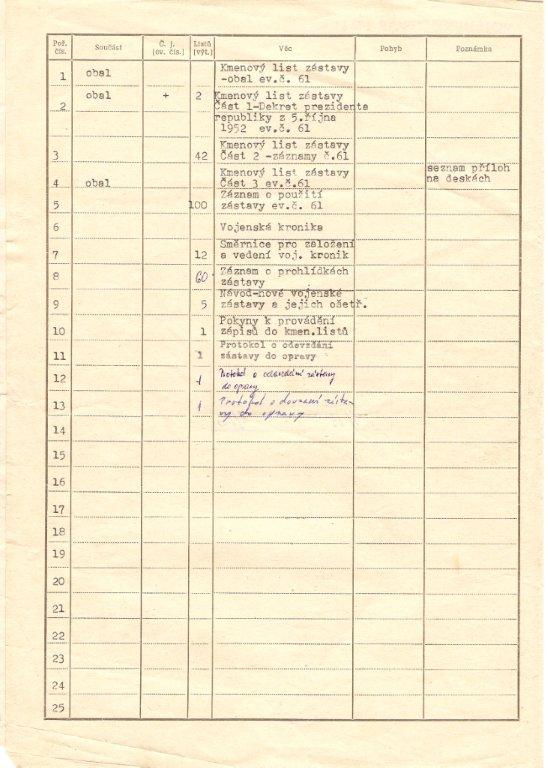 Poř. čís. Součást Č. j. (ev. čís.) Listů (výt.) Věc Pohyb Poznámka
1 obal Kmenový list zástavy
-obal ev.č. 61
2 obal + 2 Kmenový list zástavy
Část 1-Dekret prezidenta
republiky z 5.října
1952 ev.č. 61
3 42 Kmenový list zástavy
Část 2 -záznamy č.61
4 obal Kmenový list zástavy
Část 3 ev.č.61 seznam příloh
na deskách
5 100 Záznam o použití
zástavy ev.č. 61
6 Vojenská kronika
7 12 Směrnice pro založení
a vedení voj. kronik
8 60 Záznam o prohlídkách
zástavy
9 5 Návod-nové vojenské
zástavy a jejich ošetř.
10 1 Pokyny k provádění
zápisů do kmen.listů
11 1 Protokol o odevzdání
zástavy do opravy
12 1 Protokol o odevzdání zástavy
do opravy
13 1 Protokol o zásta-
vy do opravy
14
15
16
17
18
19
20
21
22
23
24
25